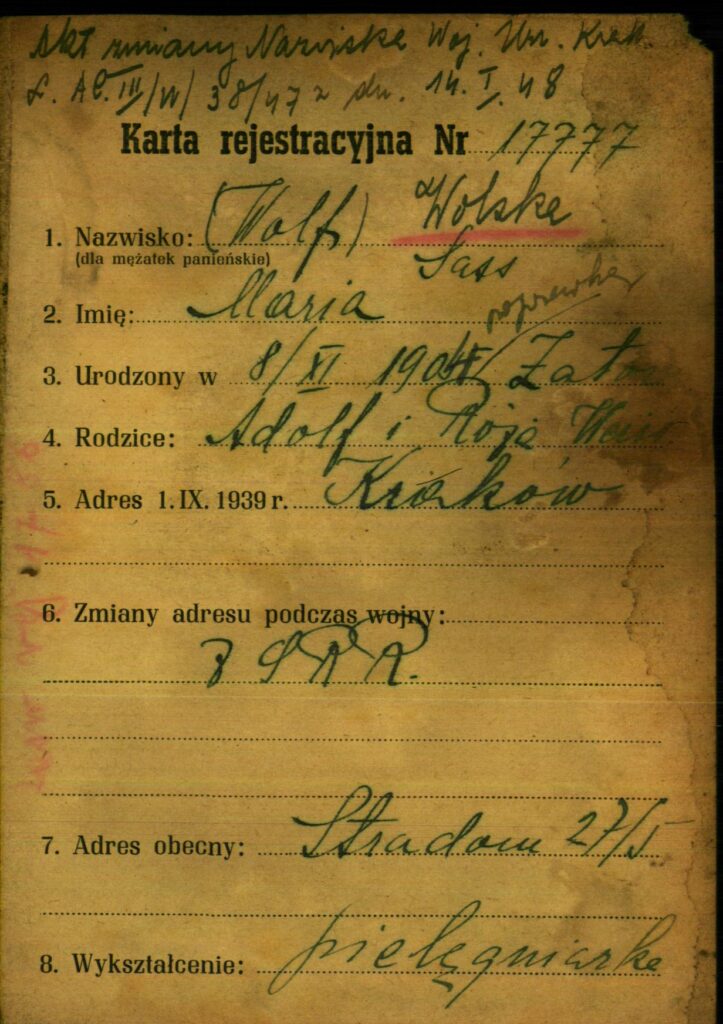 Akt zmiany Nazwiska Woj. Urz. Krak.
L. AC.III/W/38/47 z dn. 14.I.48
Karta rejestracyjna Nr 17777
1. Nazwisko: (Wolf) Wolska
(dla mężatek panieńskie) Sass
2. Imię: Maria
poprawka
3. Urodzony w 8/XI 1904 Zator
4. Rodzice: Adolf i Róża
5. Adres 1.IX.1939 r. Kraków
6. Zmiany adresu podczas wojny:
ZSRR.
7. Adres obecny: Stradom 27/5
8. Wykształcenie: pielęgniarka